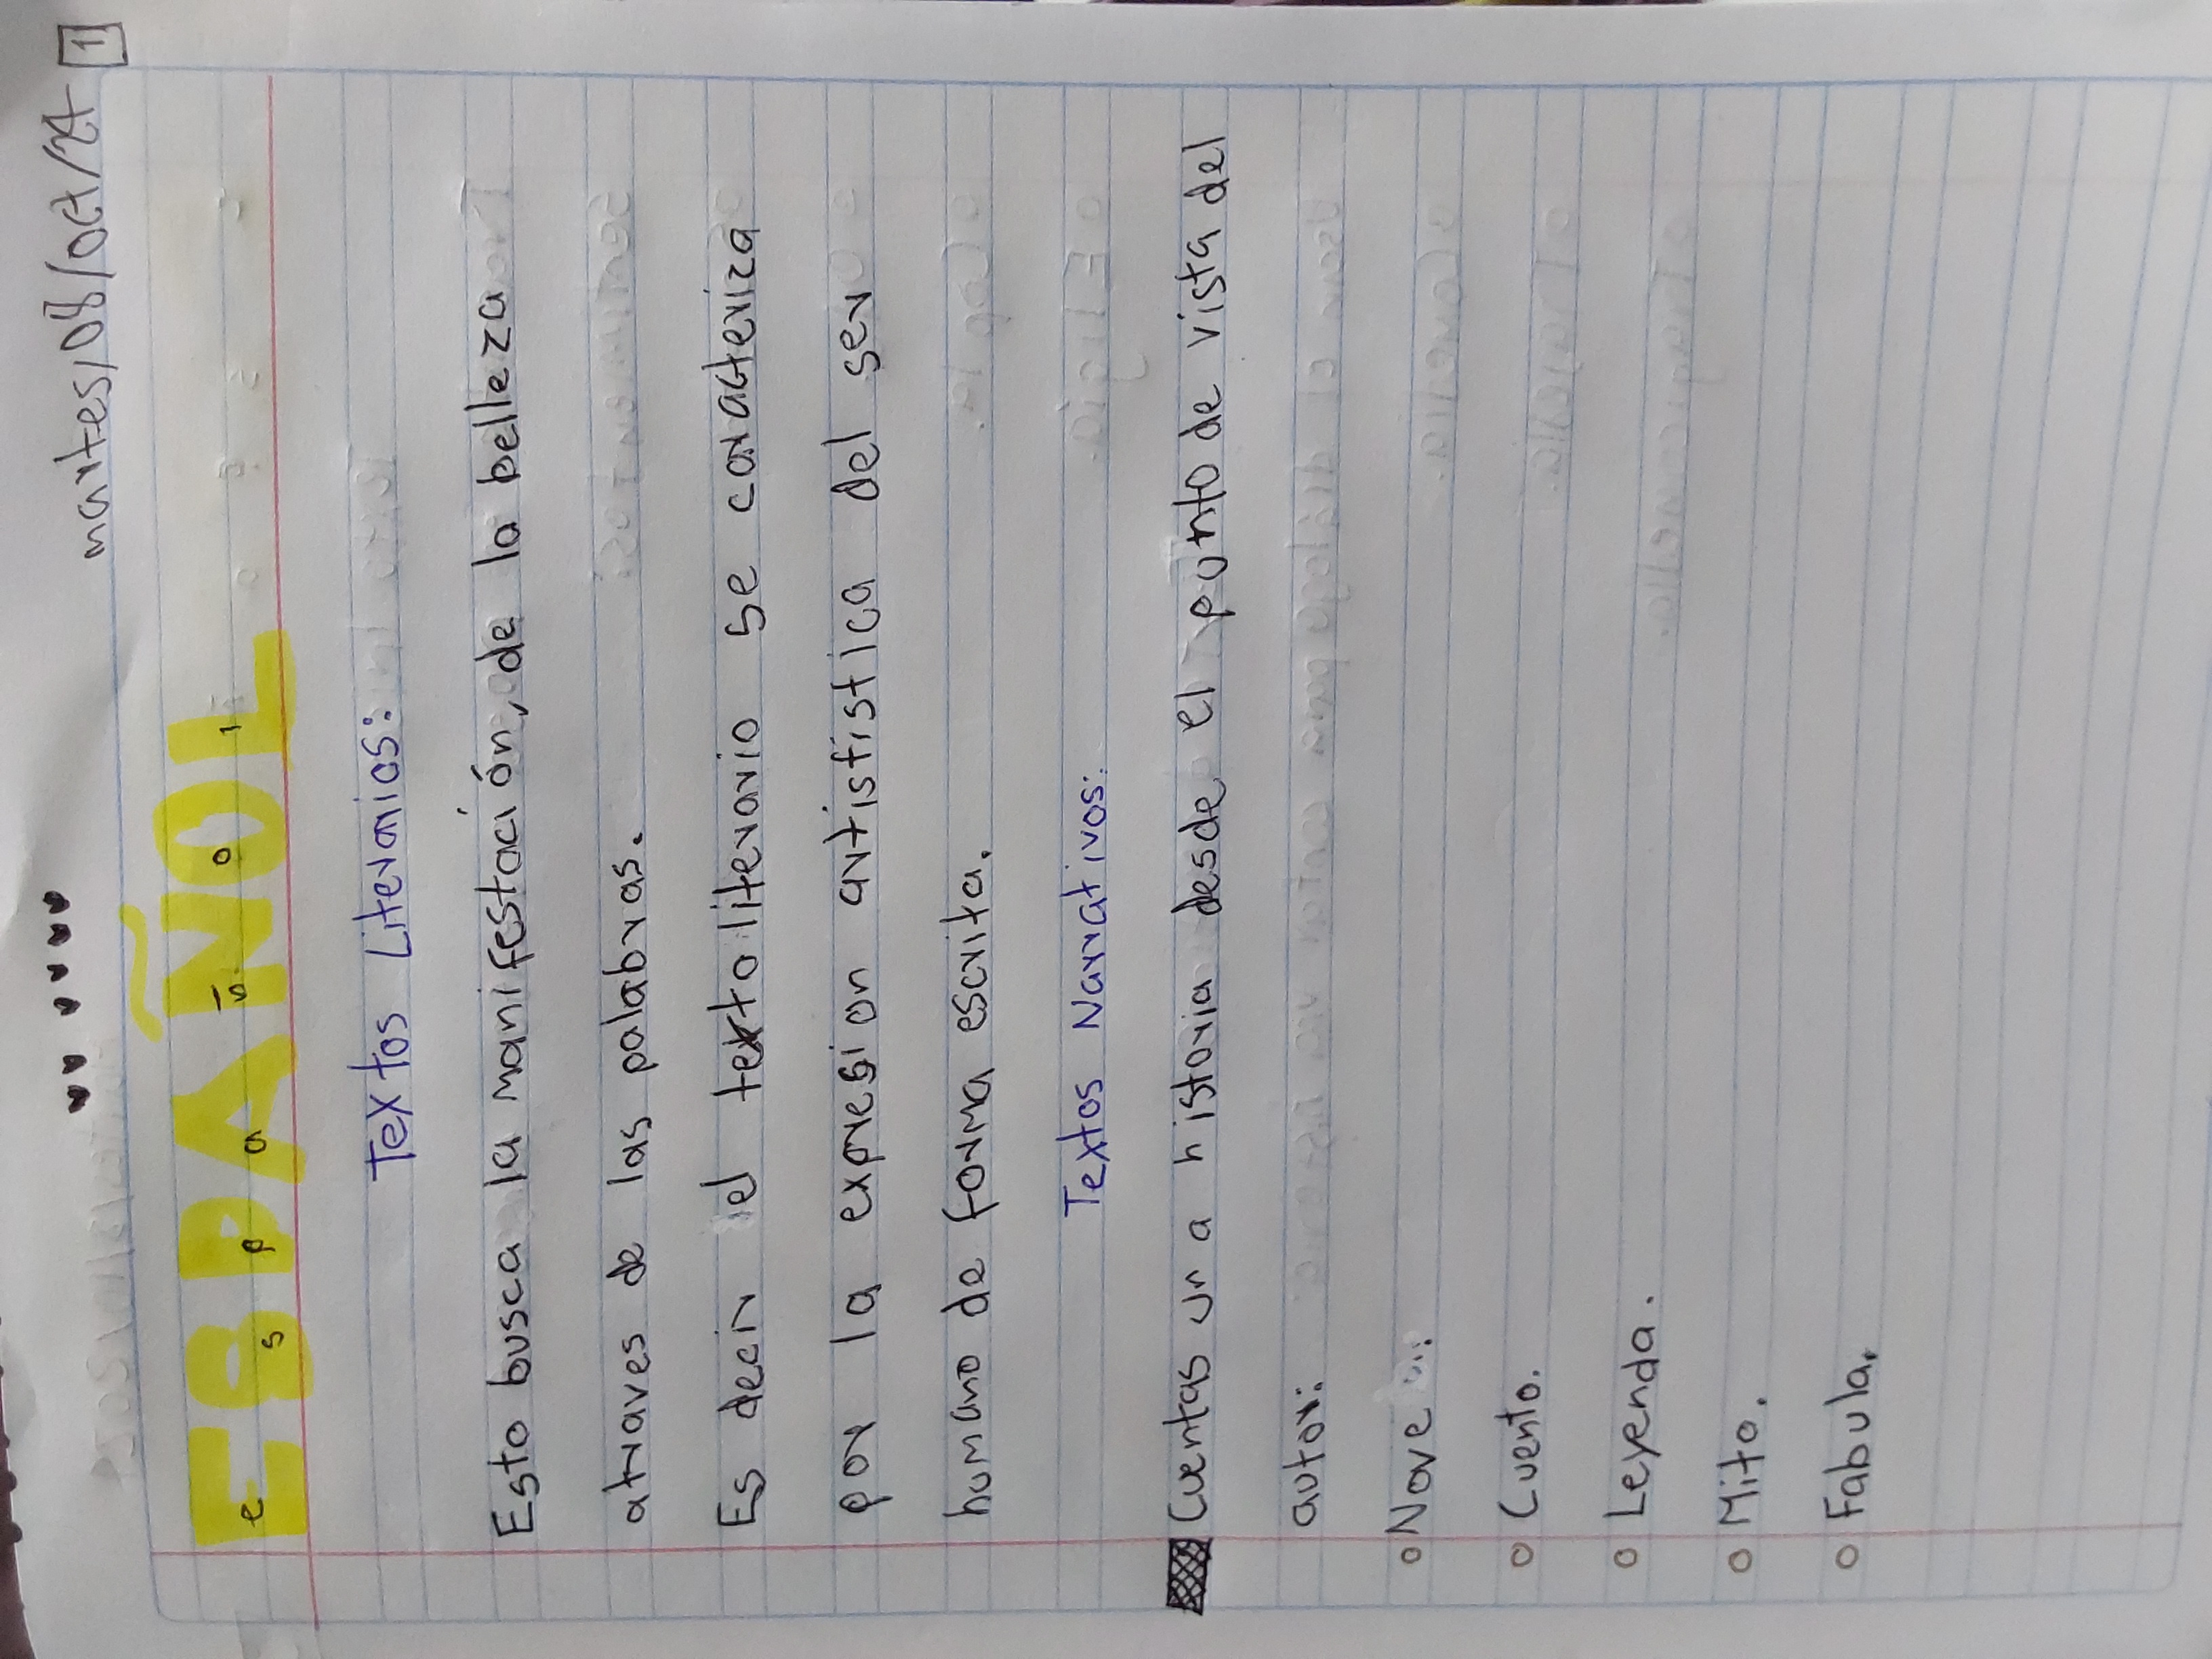 martes/08/oct/24 1
ESPAÑOL
e s p a ñ o l
Textos Literarios:
Esto busca la manifestación, de la belleza
atraves de las palabras.
Es decir el texto literario se caracteriza
por la expresion artististica del ser
humano de forma escrita.
Textos Narrativos:
Cuentas un a historia desde el punto de vista del
autor:
o Nove
o Cuento.
o Leyenda.
o Mito.
o Fabula.